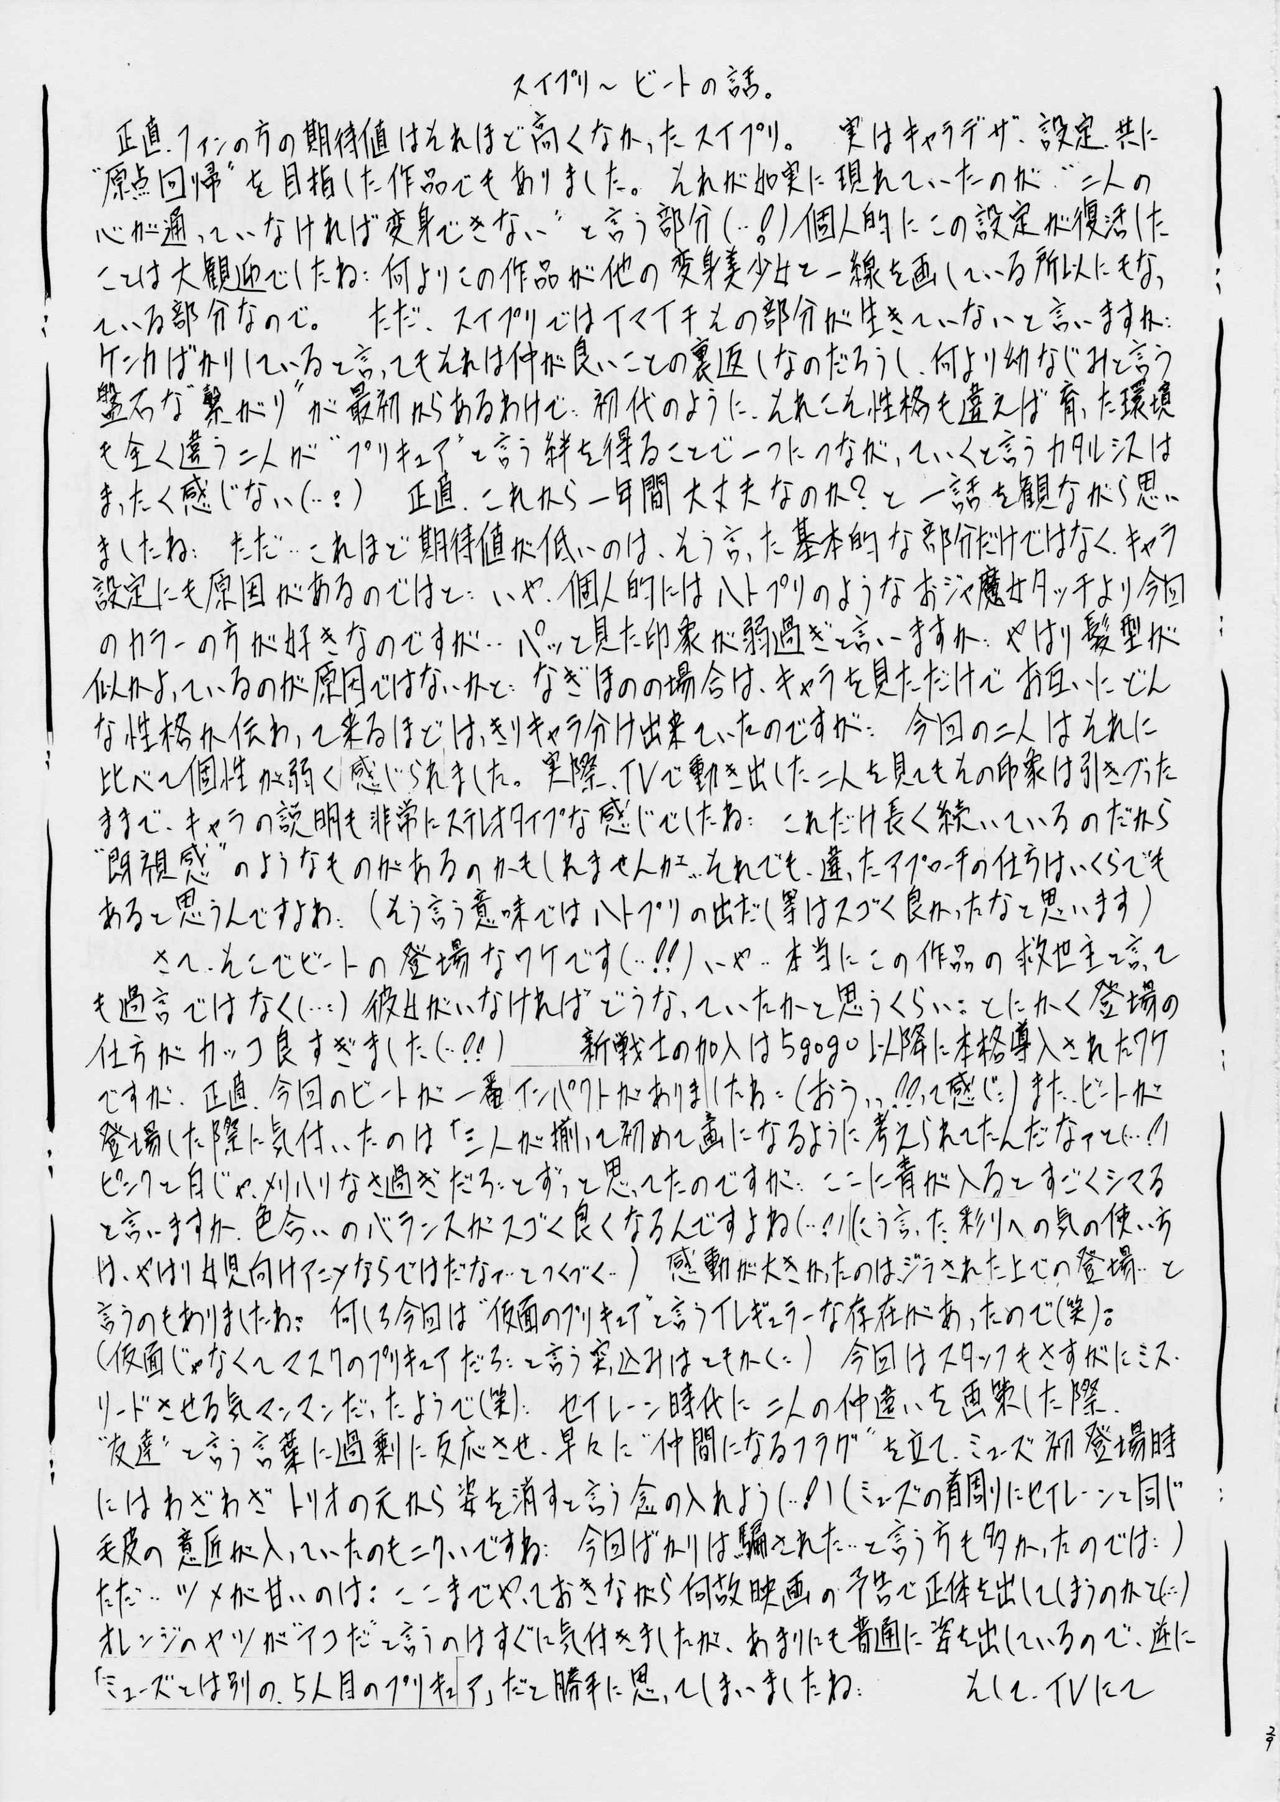 スイプリ～ビートの話。
正直、ファンの方の期待値はそれほど高くなかったスイプリ。 実はキャラデザ、設定、共に
"原点回帰"を目指した作品でもありました。 それが如実に現れていたのが、"二人の
心が通っていなければ変身できない"と言う部分(…!)個人的にこの設定が復活した
ことは大観迎でしたね… 何よりこの作品が他の変身美少女と一線を画している所以にもなっ
ている部分なので。 ただ、スイプリではイマイチその部分が生きていないと言いますか…
ケンカばかりしていると言ってもそれは仲が良いことの裏返しなのだろうし、何より幼なじみと言う
盤石な"繋がり"が最初からあるわけで… 初代のように、それこそ性格も違えば育った環境
も全く違う二人が"プリキュア"と言う絆を得ることで一つにつながっていくと言うカタルシスは
まったく感じない(…?) 正直、これから一年間大丈夫なのか?と一話を観ながら思い
ましたね… ただ…これほど期待値が低いのは、そう言った基本的な部分だけではなく、キャラ
設定にも原因があるのではと… いや、個人的にはハトプリのようなおジャ魔女タッチより今回
のカラーの方が好きなのですが… パッと見た印象が弱過ぎと言いますか… やはり髪型が
似かよっているのが原因ではないかと… なぎほのの場合は、キャラを見ただけで お互いにどん
な性格か伝わって来るほどはっきりキャラ分け出来ていたのですが… 今回の二人はそれに
比べて個性が弱く感じられました。 実際、TVで動き出した二人を見てもその印象は引きずった
ままで、キャラの説明も非常にステレオタイプな感じでしたね… これだけ長く続いているのだから
"既視感"のようなものがあるのかもしれませんが…それでも、違ったアプローチの仕方はいくらでも
あると思うんですよね… (そう言う意味ではハトプリの出だし等はスゴく良かったなと思います)
さて、そこでビートの登場なワケです(…!!)いや… 本当にこの作品の救世主と言って
も過言ではなく(…) 彼女がいなければどうなっていたかと思うくらい… とにかく登場の
仕方がカッコ良すぎました(…!!) 新戦士の加入は5gogo以降に本格導入されたワケ
ですが、正直、今回のビートが一番インパクトがありましたね…(おうっっ!!って感じ…)また、ビートが
登場した際に気付いたのは「三人が揃って初めて画になるように考えられてたんだなァと(…!)
ピンクと白じゃ、メリハリなさ過ぎだろ…とずっと思ってたのですが… ここに青が入るとすごくシマる
と言いますか、色合いのバランスがスゴく良くなるんですよね(…!)(こう言った彩りへの気の使い方
は、やはり女児向けアニメならではだなァ…とつくづく…) 感動が大きかったのは、ジラされた上での登場… と
言うのもありましたね… 何しろ今回は"仮面のプリキュア"と言うイレギュラーな存在があったので(笑)…
(仮面じゃなくてマスクのプリキュアだろ…と言う突っ込みはともかく…) 今回はスタッフもさすがにミス・
リードさせる気マンマンだったようで(笑)… セイレーン時代に二人の仲違いを画策した際、
"友達"と言う言葉に過剰に反応させ、早々に"仲間になるフラグ"を立て、ミューズ初登場時
にはわざわざトリオの元から姿を消すと言う念の入れよう(…!)(ミューズの首周りにセイレーンと同じ
毛皮の意匠が入っていたのもニクいですね… 今回ばかりは騙された…と言う方も多かったのでは…)
ただ… ツメが甘いのは… ここまでやっておきながら何故映画の予告で正体を出してしまうのかと(…)
オレンジのヤツが"アコ"だと言うのはすぐに気付きましたが、あまりにも普通に姿を出しているので、逆に
「ミューズとは別の、5人目のプリキュア」だと勝手に思ってしまいましたね… そして、TVにて
29